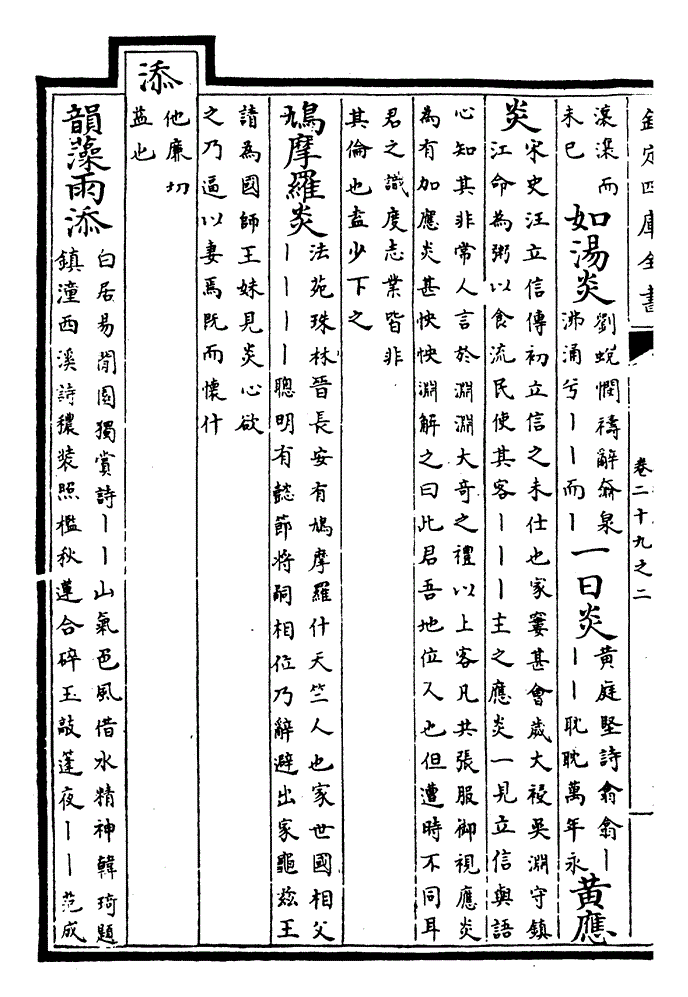 欽定四庫全書 卷二十九之二
滾滾而
未已
如湯炎
劉蛻憫禱辭 泉
沸涌兮丨丨而丨
一日炎
黃庭堅詩翕翕丨
丨丨耽耽萬年永
黃應
炎
宋史汪立信傳初立信之未仕也家窶甚會歲大祲吳淵守鎮
江命為粥以食流民使其客丨丨丨主之應炎一見立信與語
心知其非常人言於淵淵大奇之禮以上客凡共張服御視應炎
為有加應炎甚怏怏淵解之曰此君吾地位人也但遭時不同耳
君之識度志業皆非
其倫也盍少下之
鳩摩羅炎
法苑珠林晉長安有鳩摩羅什天竺人也家世國相父
丨丨丨丨聰明有懿節將嗣相位乃辭避出家龜兹王
請為國師王妹見炎心欲
之乃逼以妻焉既而懷什
添
他廉切
益也
韻藻雨添
白居易閒園獨賞詩丨丨山氣色風借水精神韓琦題
鎮潼西溪詩穠裝照檻秋蓮合碎玉敲蓬夜丨丨范成